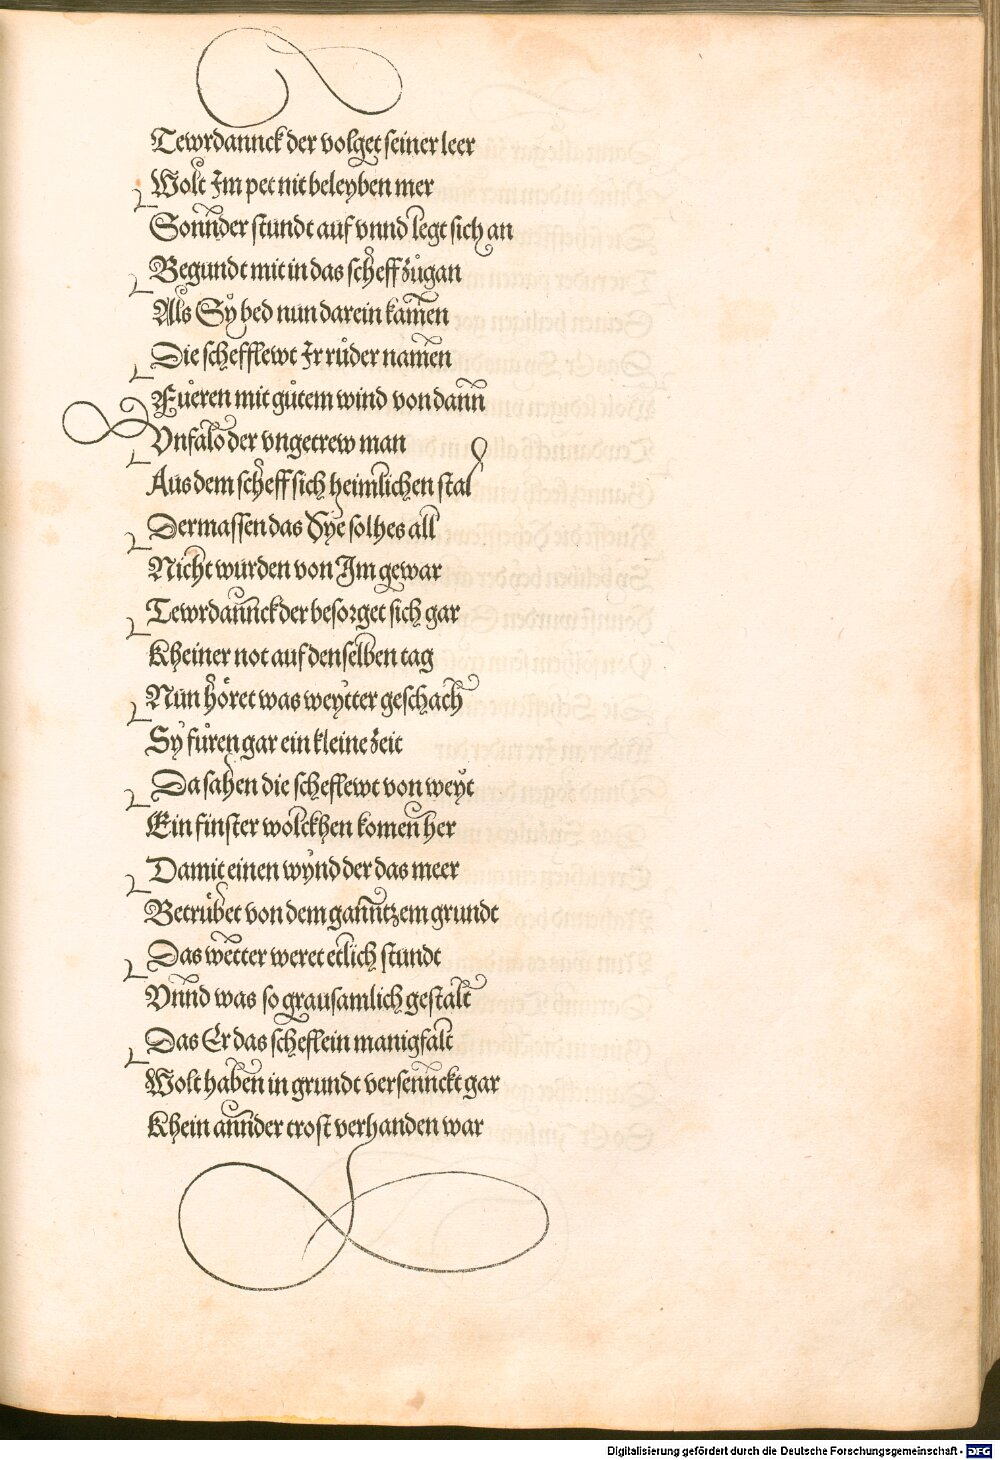 Tewrdannck der volget seiner leer
Wolt Jm pet nit beleyben mer
Sonnder stundt auf vnnd legt sich an
Begundt mit in das scheff zůgan
Als Sy bed nun darein kamen
Die schefflewt Jr růder namen
Fůeren mit gůtem wind von dann
Vnfalo der vngetrew man
Aus dem scheff sich heimlichen stal
Dermassen das Sye solhes all
Nicht wurden von Jm gewar
Tewrdannck der besorget sich gar
Kheiner not auf denselben tag
Nůn höret was weytter geschach
Sy fůren gar ein kleine zeit
Da sahen die scheflewt von weyt
Ein finster wolckhen komen her
Damit einen wynd der das meer
Betrůbet von dem ganntzem grundt
Das wetter weret etlich stundt
Vnnd was so grausamlich gestalt
Das Er das scheflein manigfalt
Wolt haben in grundt versennckt gar
Khein annder trost verhanden war
Digitalisierung gefördert durch die Deutsche Forschungsgemeinschaft - DFG